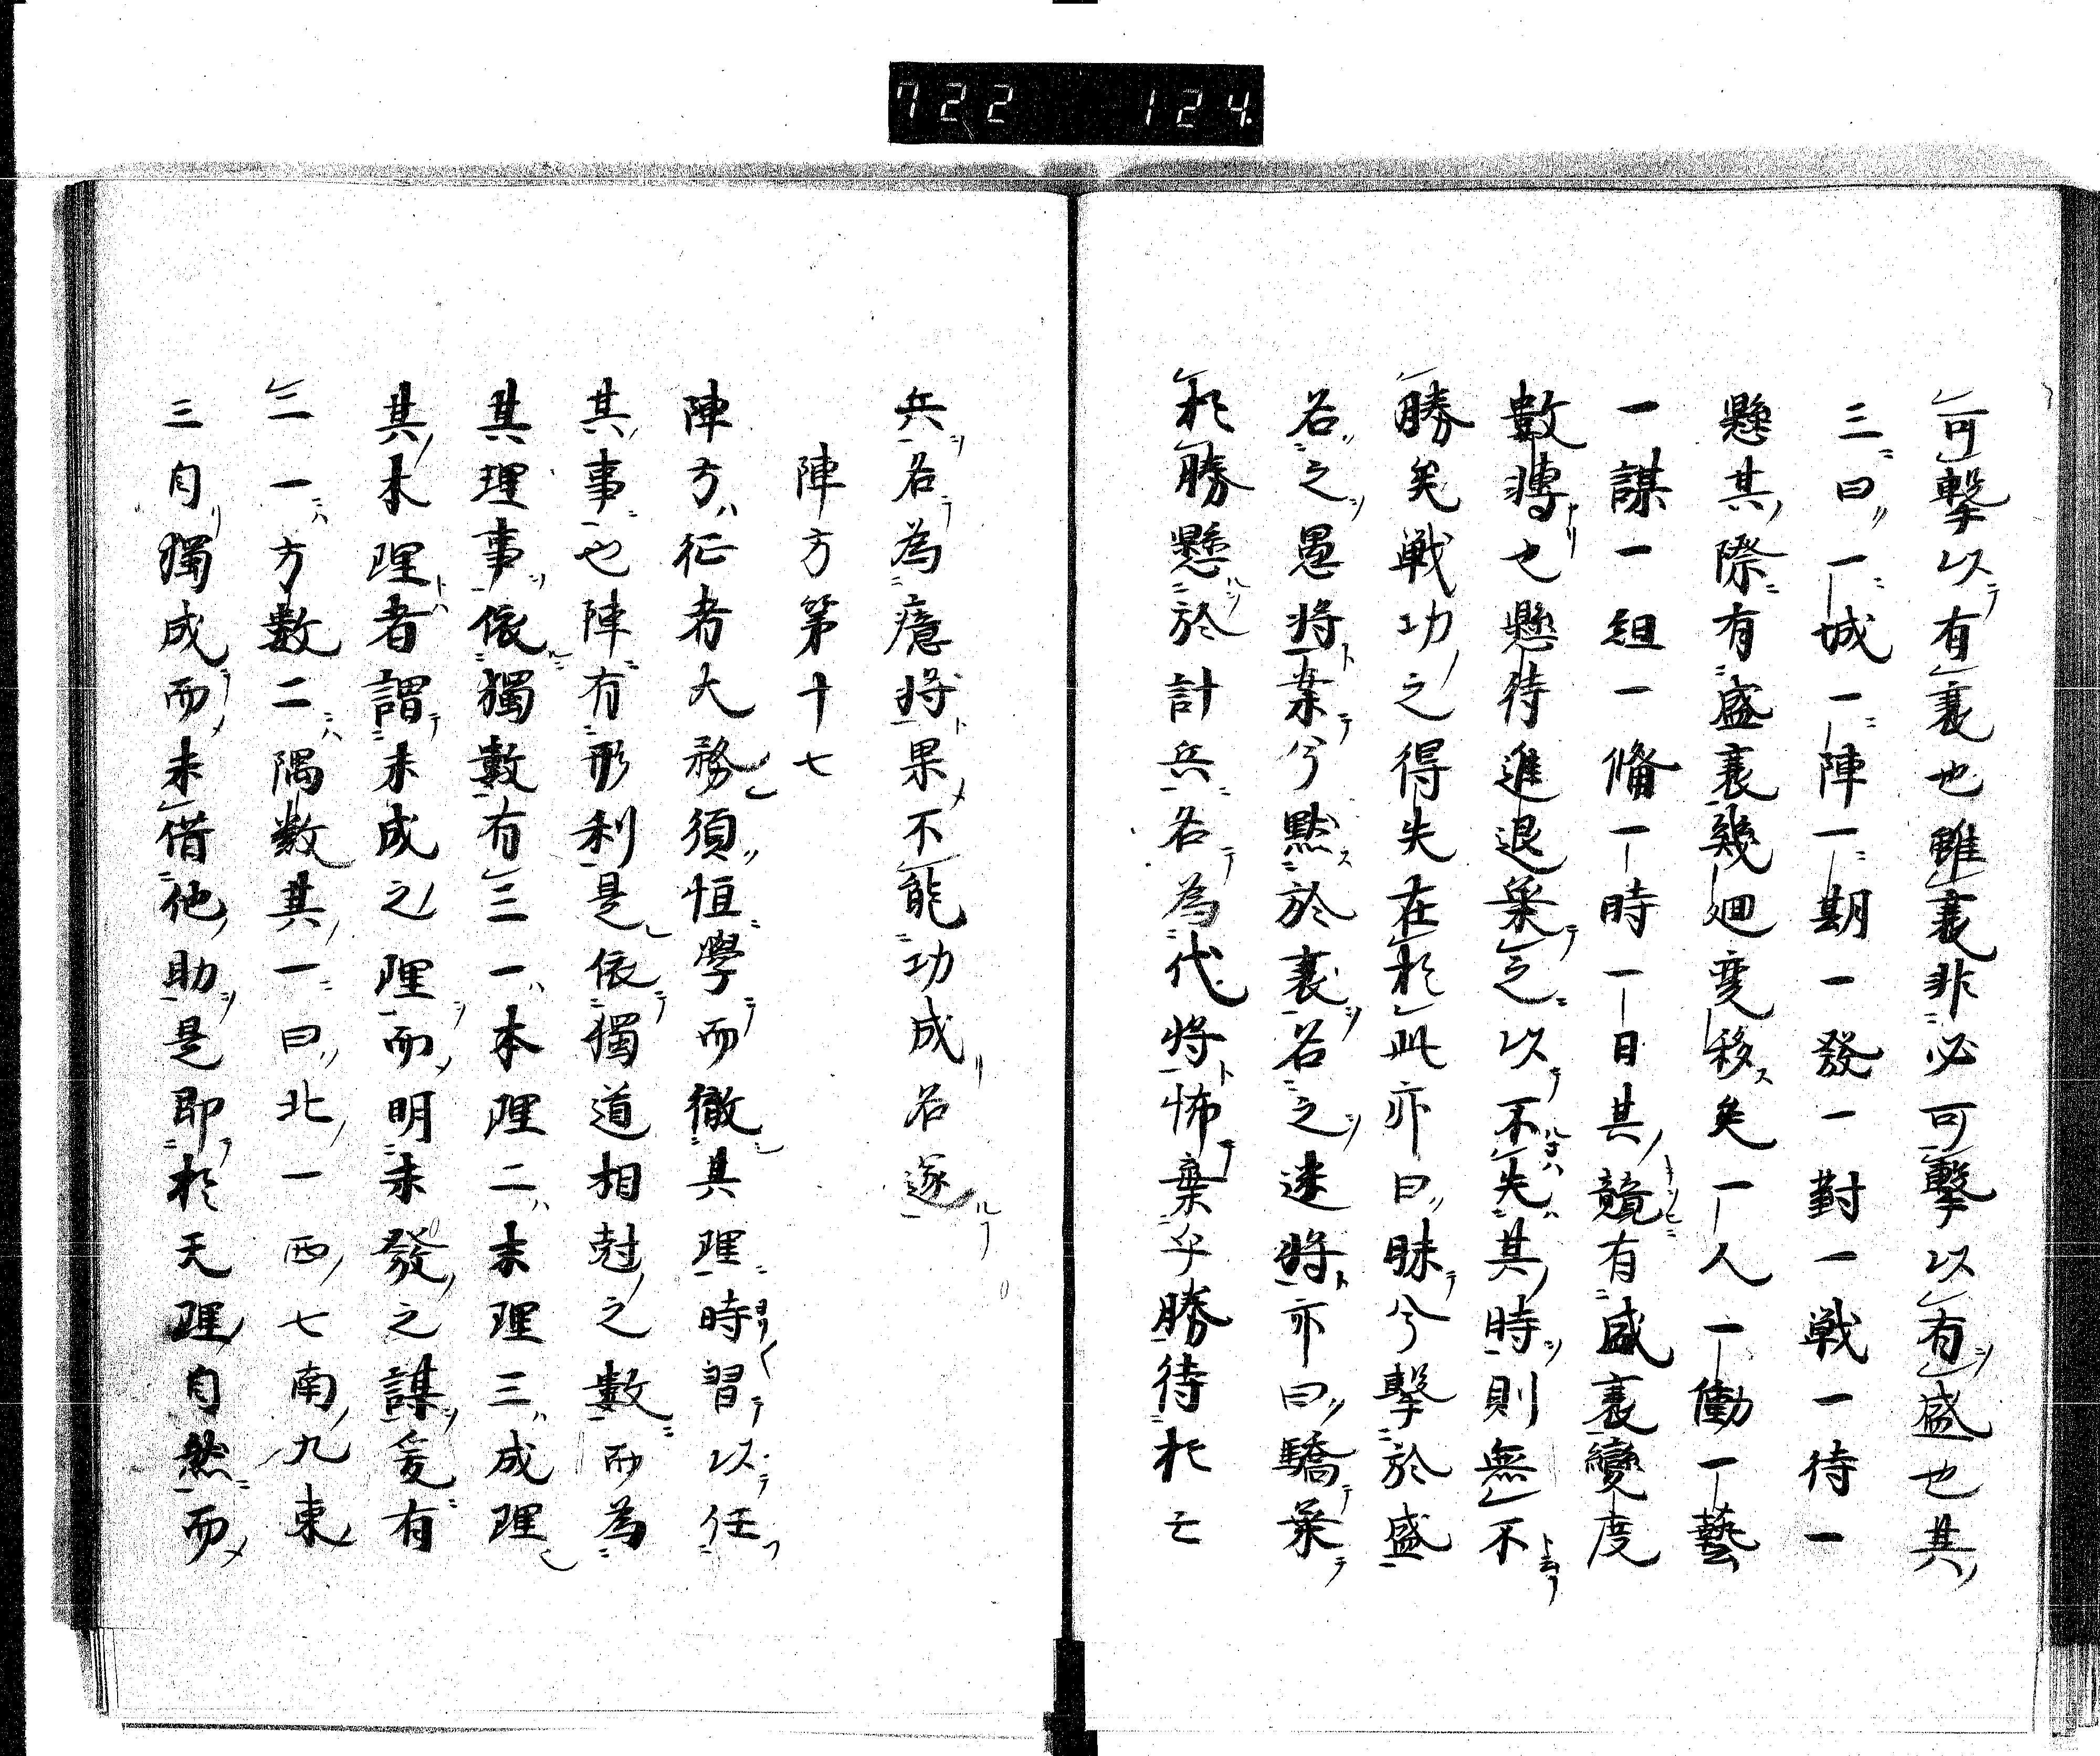 722 124.
可擊以有衰也雖衰非必可擊以有盛也其
三曰一城一陣一期一發一對一戦一待一
懸其際有盛衰幾廻変移矣一人一働一藝
一謀一組一備一時一日其競有盛衰變度
數轉也懸待進退棄之以不失其時則無不
勝矣戦功之得失在於此亦曰昧兮擊於盛
名之愚将棄兮黙於衰名之迷将亦曰驕棄
於勝懸於計兵名為代将怖棄乎勝待於亡
兵名為癔将果不能功成名遂
陣方第十七
陣方征者大務須恒學而徹其理時習以任
其事也陣有形利是依獨道相尅之數而為
其理事依獨數有三一本理二末理三成理
其本理者謂未成之理而明未發之謀爰有
二一方數二隅數其一曰北一西七南九東
三自獨成而未借他助是即於天理自然而